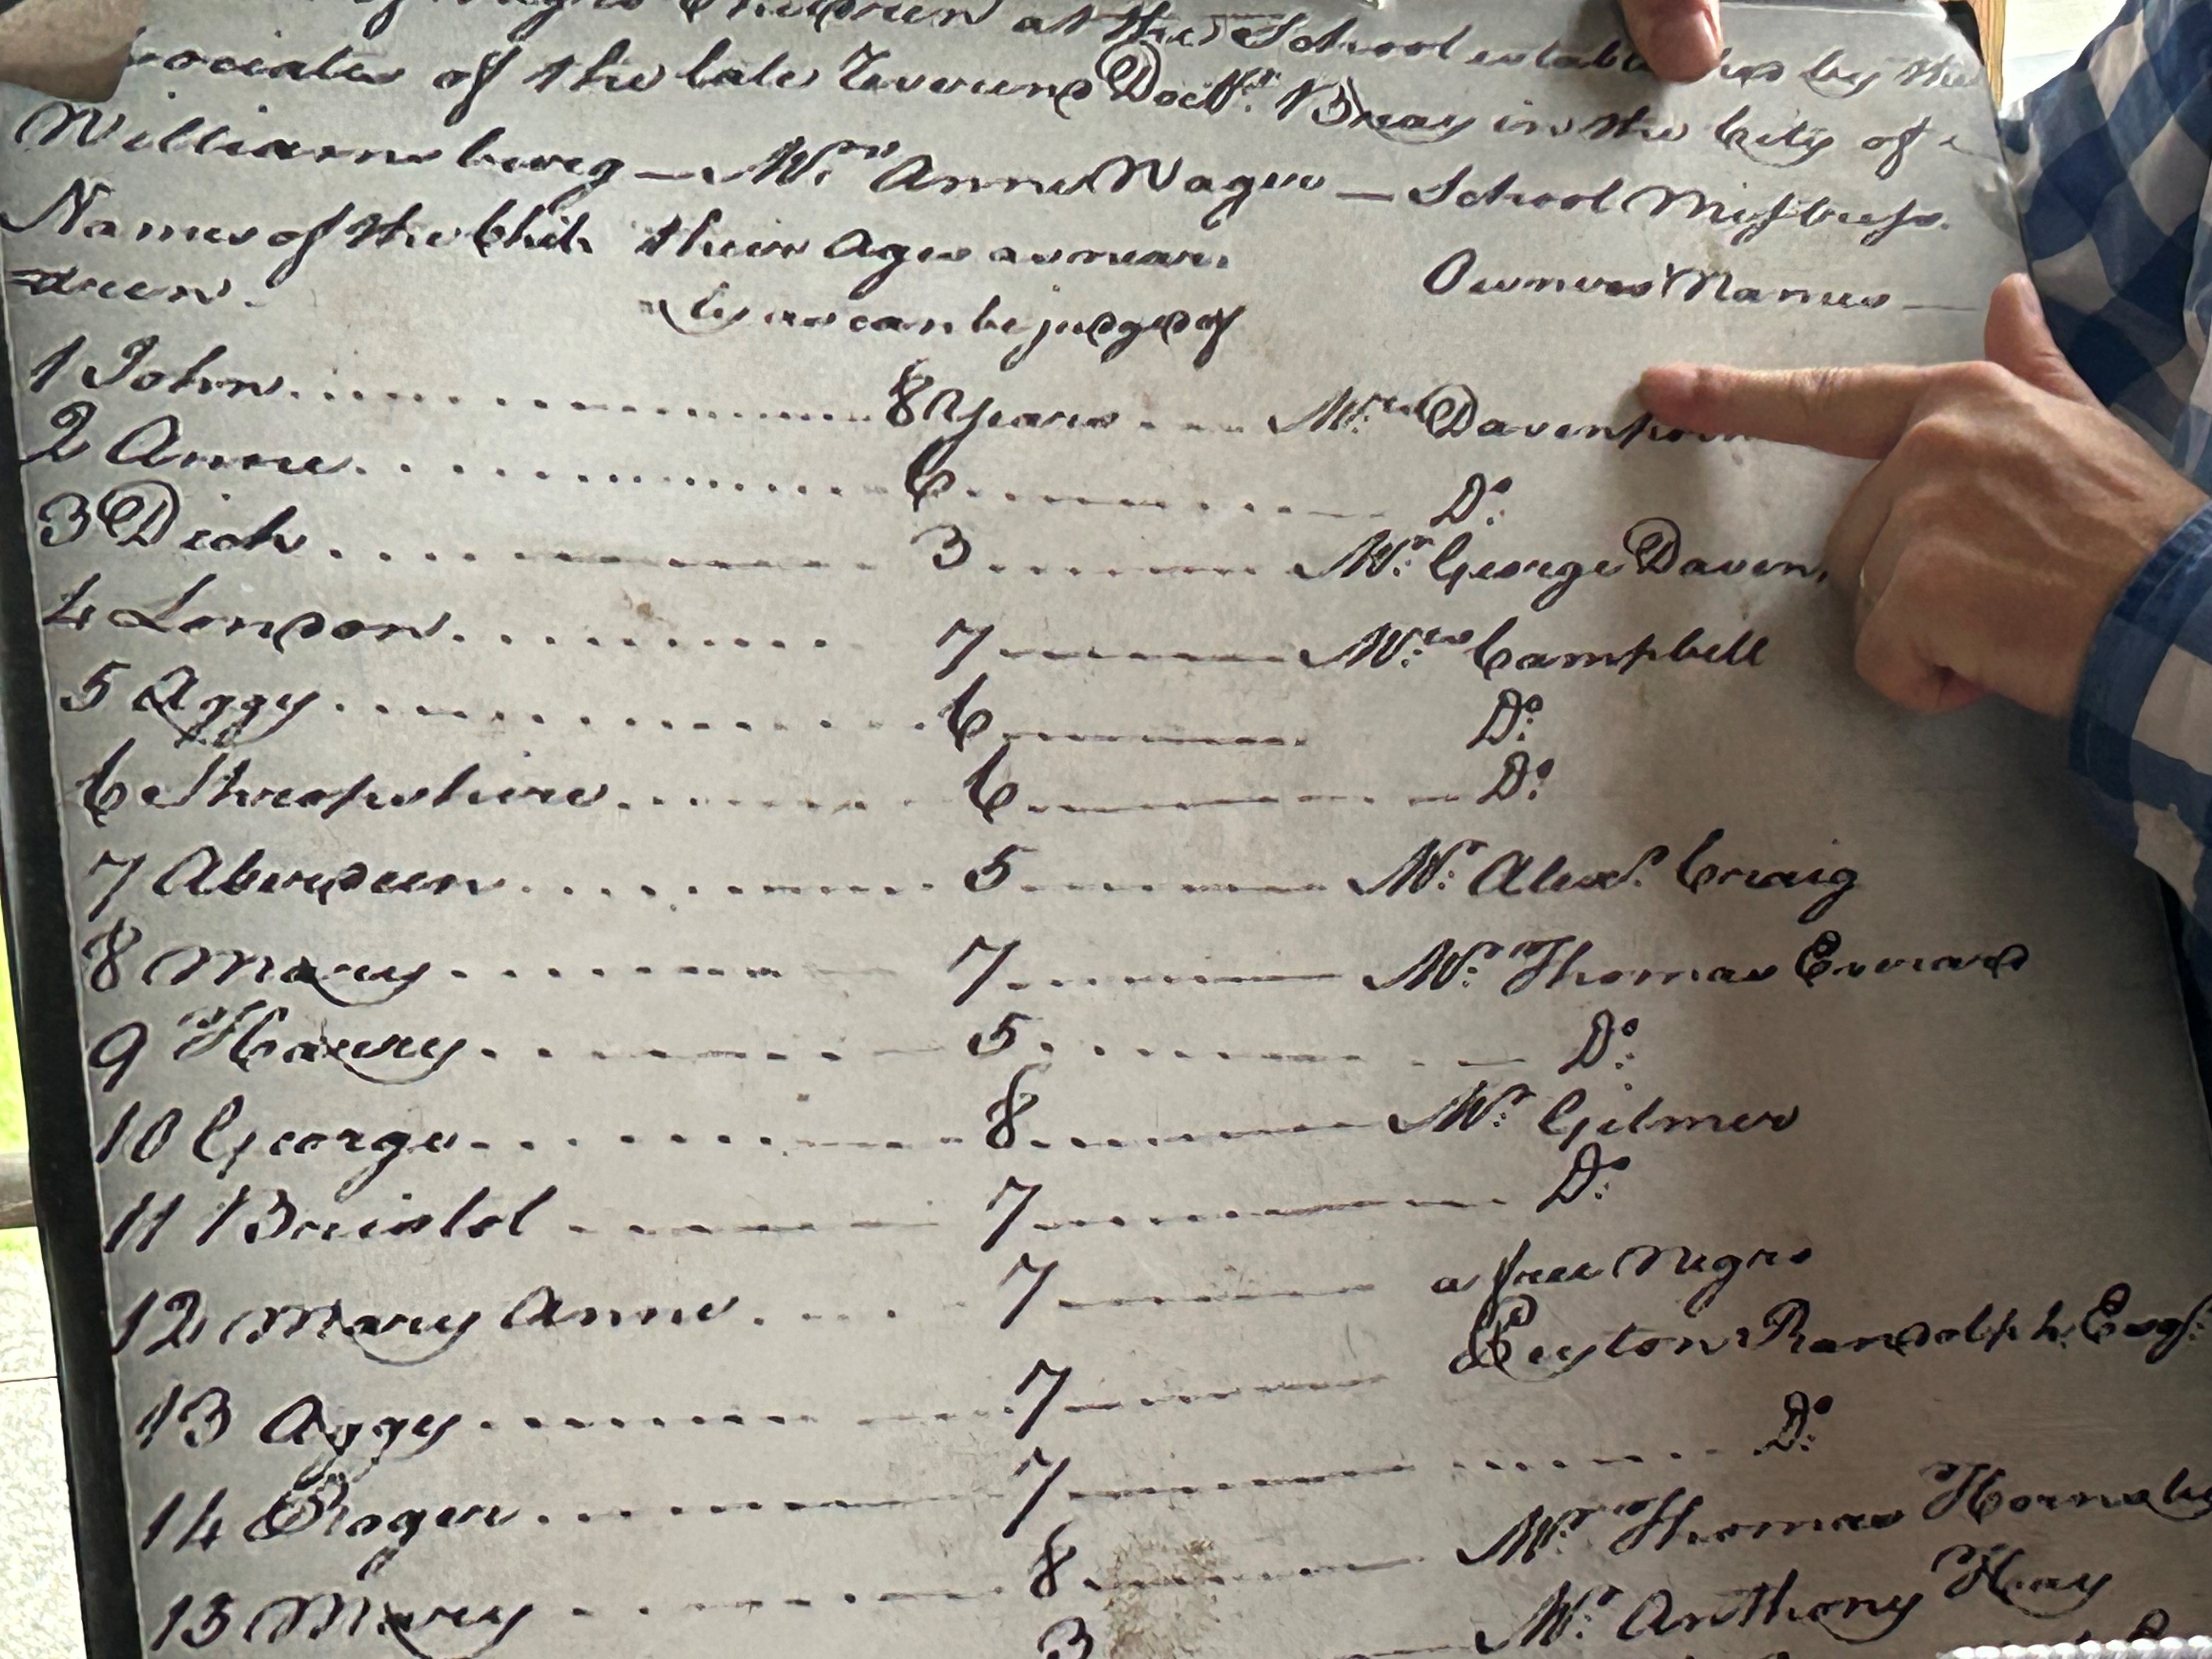 of Negro Children at the School established by the
sociates of the late Reverend Doctr. Bray in the City of
Williamsburg — Mrs. Anne Wager — School Mistress.
Names of the Chil,
dren.
their Ages as near,
ly as can be judged of
Owners Names —
1 John 8 Years Mrs. Davenport
2 Anne 6 Do.
3 Dick 3 Mr. George Daven,
4 London 7 Mrs. Campbell
5 Aggy 6 Do.
6 Shropshire 6 Do.
7 Aberdeen 5 Mr. Alexr. Craig
8 Mary 7 Mr. Thomas Everard
9 Harry 5 Do.
10 George 8 Mr. Gilmer
11 Bristol 7 Do.
12 Mary Anne 7 a free Negro
13 Aggy 7 Peyton Randolph Esqr.
14 Roger 7 Do.
15 Mary 8 Mr. Thomas Hornsby
3 Mr. Anthony Hay